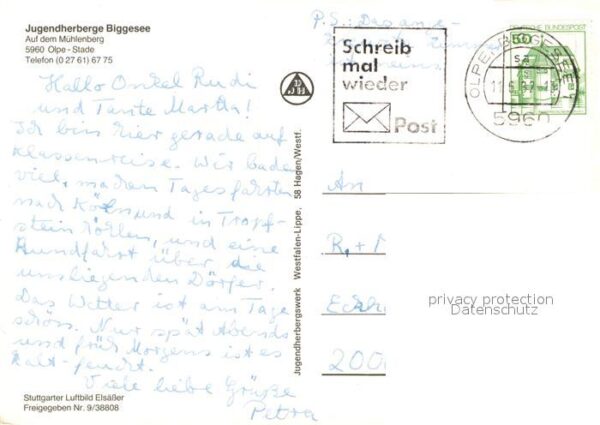 Jugendherberge Biggesee
Auf dem Mühlenberg
5960 Olpe - Stade
Telefon (0 27 61) 67 75
Hallo Onkel Rudi
und Tante Martha!
Ich bin hier gerade auf
Klassenreise. Wir baden
viel, machen Tagesfahrten
nach Köln und in Tropf-
steinhöhlen, und eine
Rundfahrt über die
umliegenden Dörfer.
Das Wetter ist am Tage
schön. Nur spät Abends
und früh Morgens ist es
kalt-feucht.
Viele liebe Grüße
Petra
Stuttgarter Luftbild Elsäßer
Freigegeben Nr. 9/38808
Jugendherbergswerk Westfalen-Lippe, 58 Hagen/Westf.
DJH
P.S.: Das ange-
Schreib
mal
wieder
Post
DEUTSCHE BUNDESPOST
50
OLPE, BIGGESEE
5960
An
R. +
200
privacy protection
Datenschutz